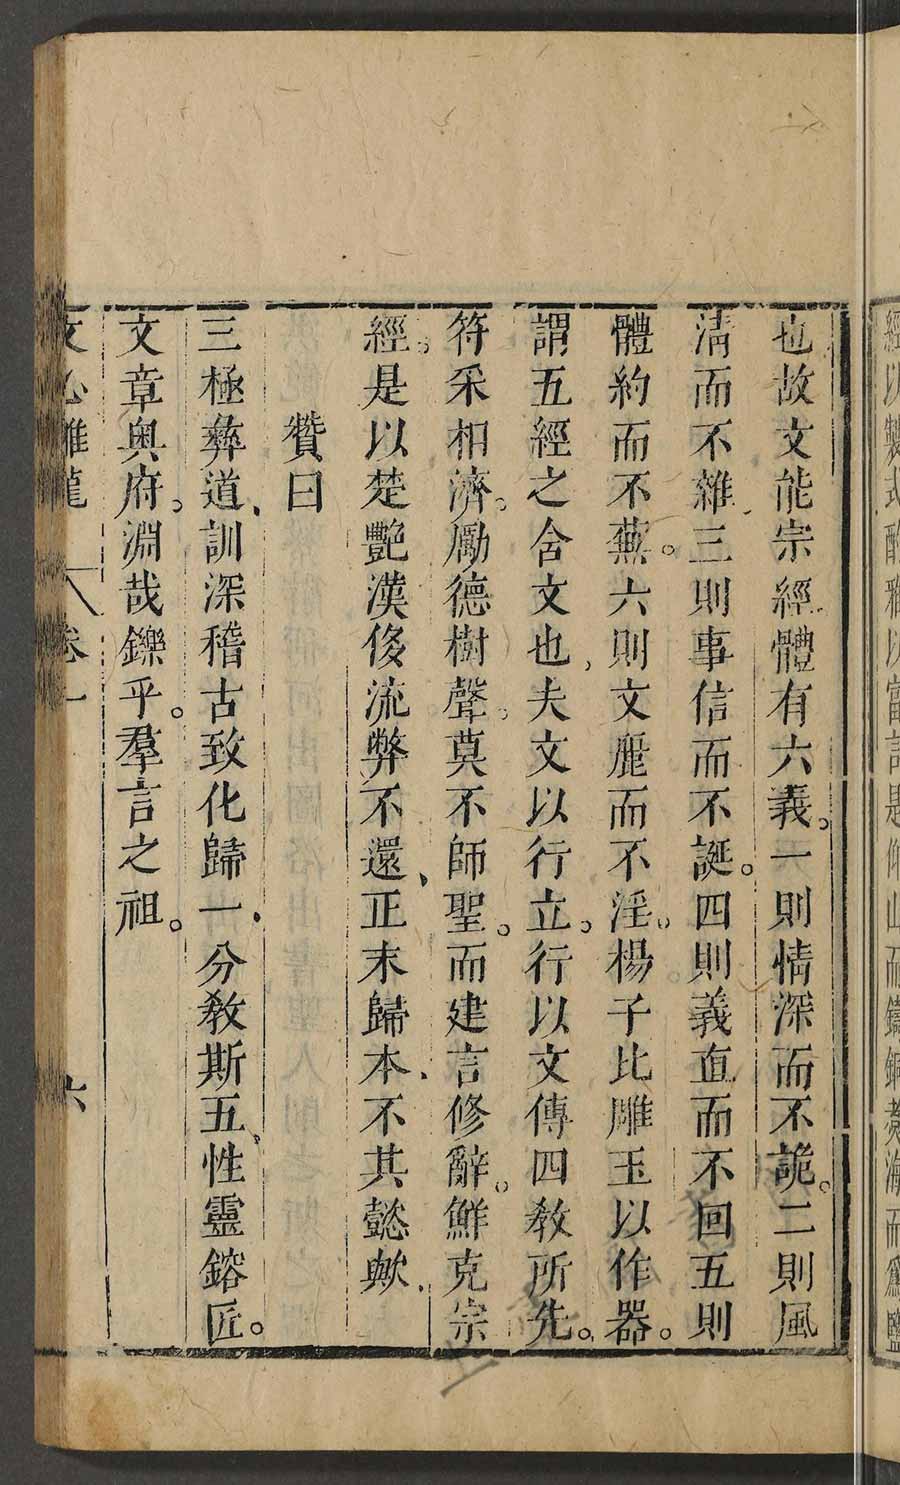 經以製式酌雅以富言是仰山而鑄銅煮海而爲鹽
也故文能宗經體有六義。一則情深而不詭。二則風
淸而不雜、三則事信而不誕。四則義直而不回五則
體約而不蕪。六則文麗而不淫。楊子比雕玉以作器。
謂五經之含文也、夫文以行立。行以文傳四敎所先。
符采相濟。勵德樹聲。莫不師聖。而建言修辭。鮮克宗
經。是以楚艷漢侈流弊不還、正末歸本、不其懿歟、
贊曰
三極彝道、訓深稽古致化歸一、分敎斯五、性靈鎔匠。
文章奥府。淵哉鑠乎。羣言之祖。
文心雕龍 卷一 六